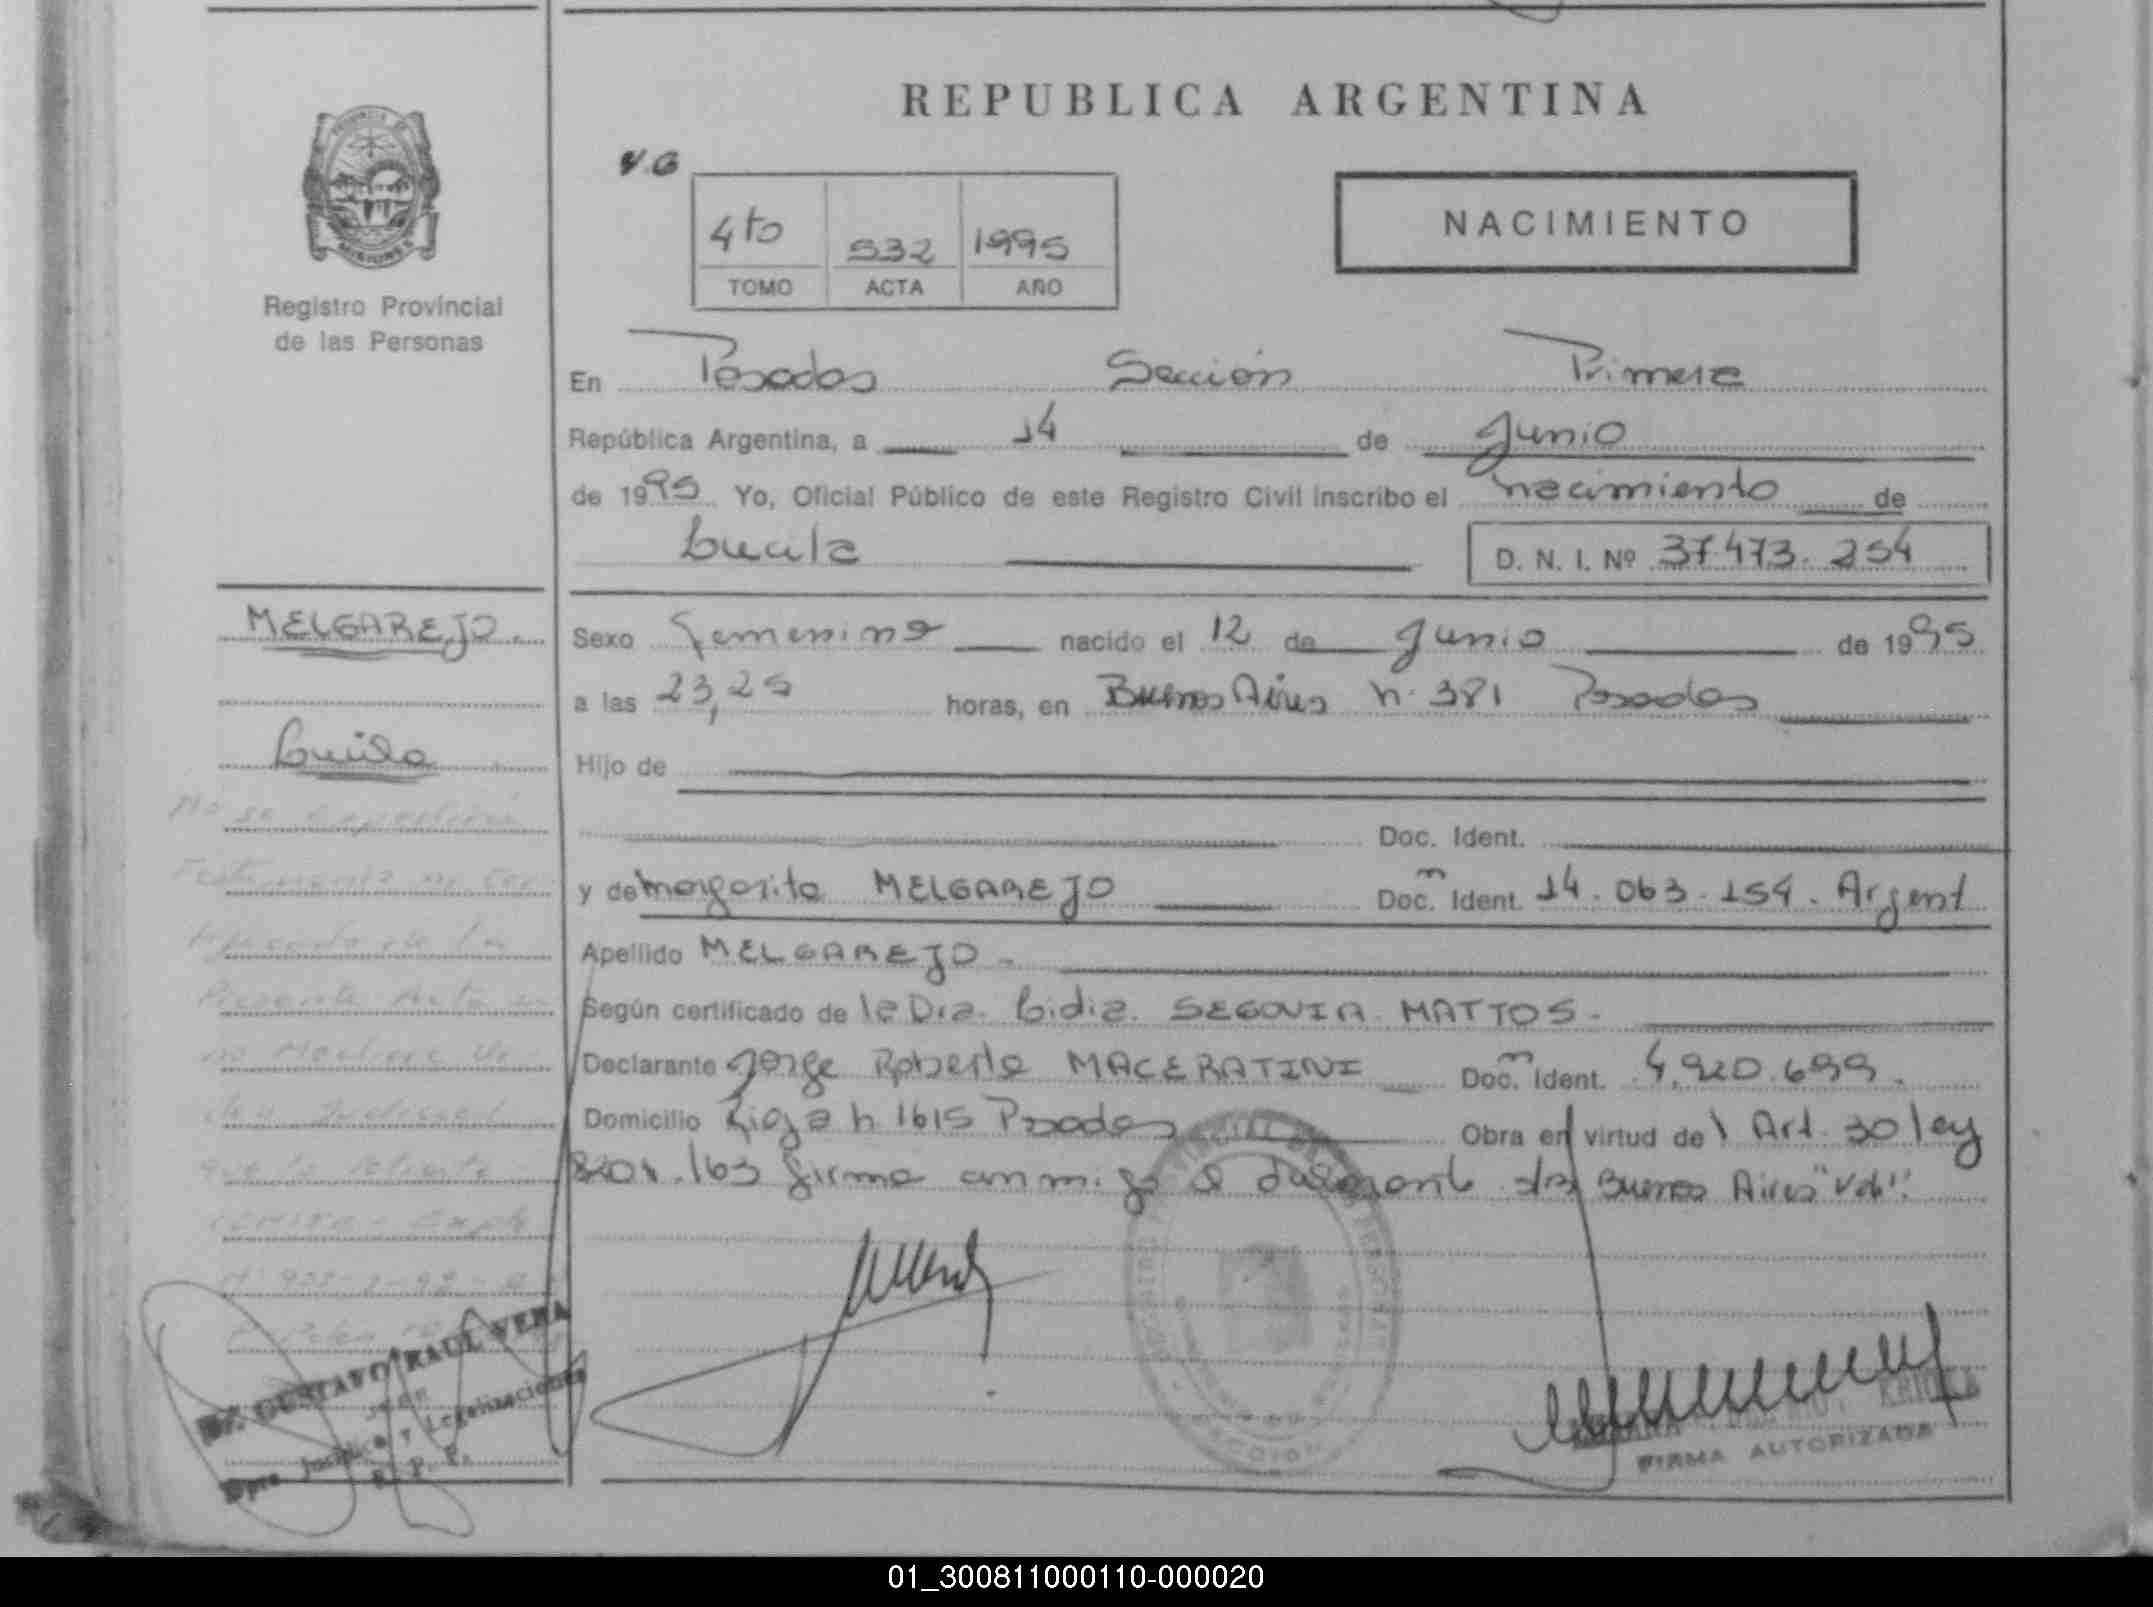 REPUBLICA ARGENTINA
V.G
4to 532 1995
TOMO ACTA AÑO
NACIMIENTO
Registro Provincial
de las Personas
En Posadas Sección Primera
República Argentina, a 14 de Junio
de 1995 Yo, Oficial Público de este Registro Civil inscribo el nacimiento de
Lucila D. N. I. Nº 37.473.254
MELGAREJO.
Lucila
No se expedirá
Testimonio ni
de la
Presente Acta
no Mediare
que lo
Dr. GUSTAVO RAUL VERA
JEFE
Dpto. Jurídico y Legalizaciones
R. P. P.
Sexo femenino nacido el 12 de Junio de 1995
a las 23,25 horas, en Buenos Aires n. 381 Posadas
Hijo de
Doc. Ident.
y de Margarita MELGAREJO Doc. Ident. 14.063.154. Argent
Apellido MELGAREJO.
Según certificado de la Dra. Lidia SEGOVIA MATTOS.
Declarante Jorge Roberto MACERATINI Doc. Ident. 4.920.699.
Domicilio Rioja n 1615 Posadas Obra en virtud del Art. 30 ley
8204.163 firma conmigo el Buenos Aires
FIRMA AUTORIZADA
01_300811000110-000020